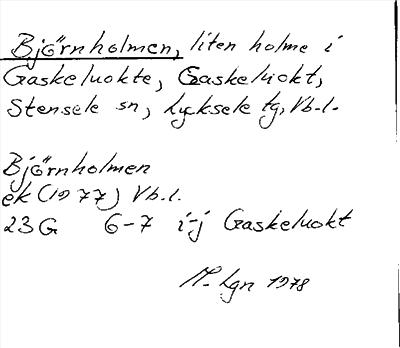 Björnholmen, liten holme i
Gaskeluokte, Gaskeluokt,
Stensele sn, Lycksele tg, Vb.l.
Björnholmen
ek (1977) Vb.l.
23G 6-7 i-j Gaskeluokt
M-Lgn 1978